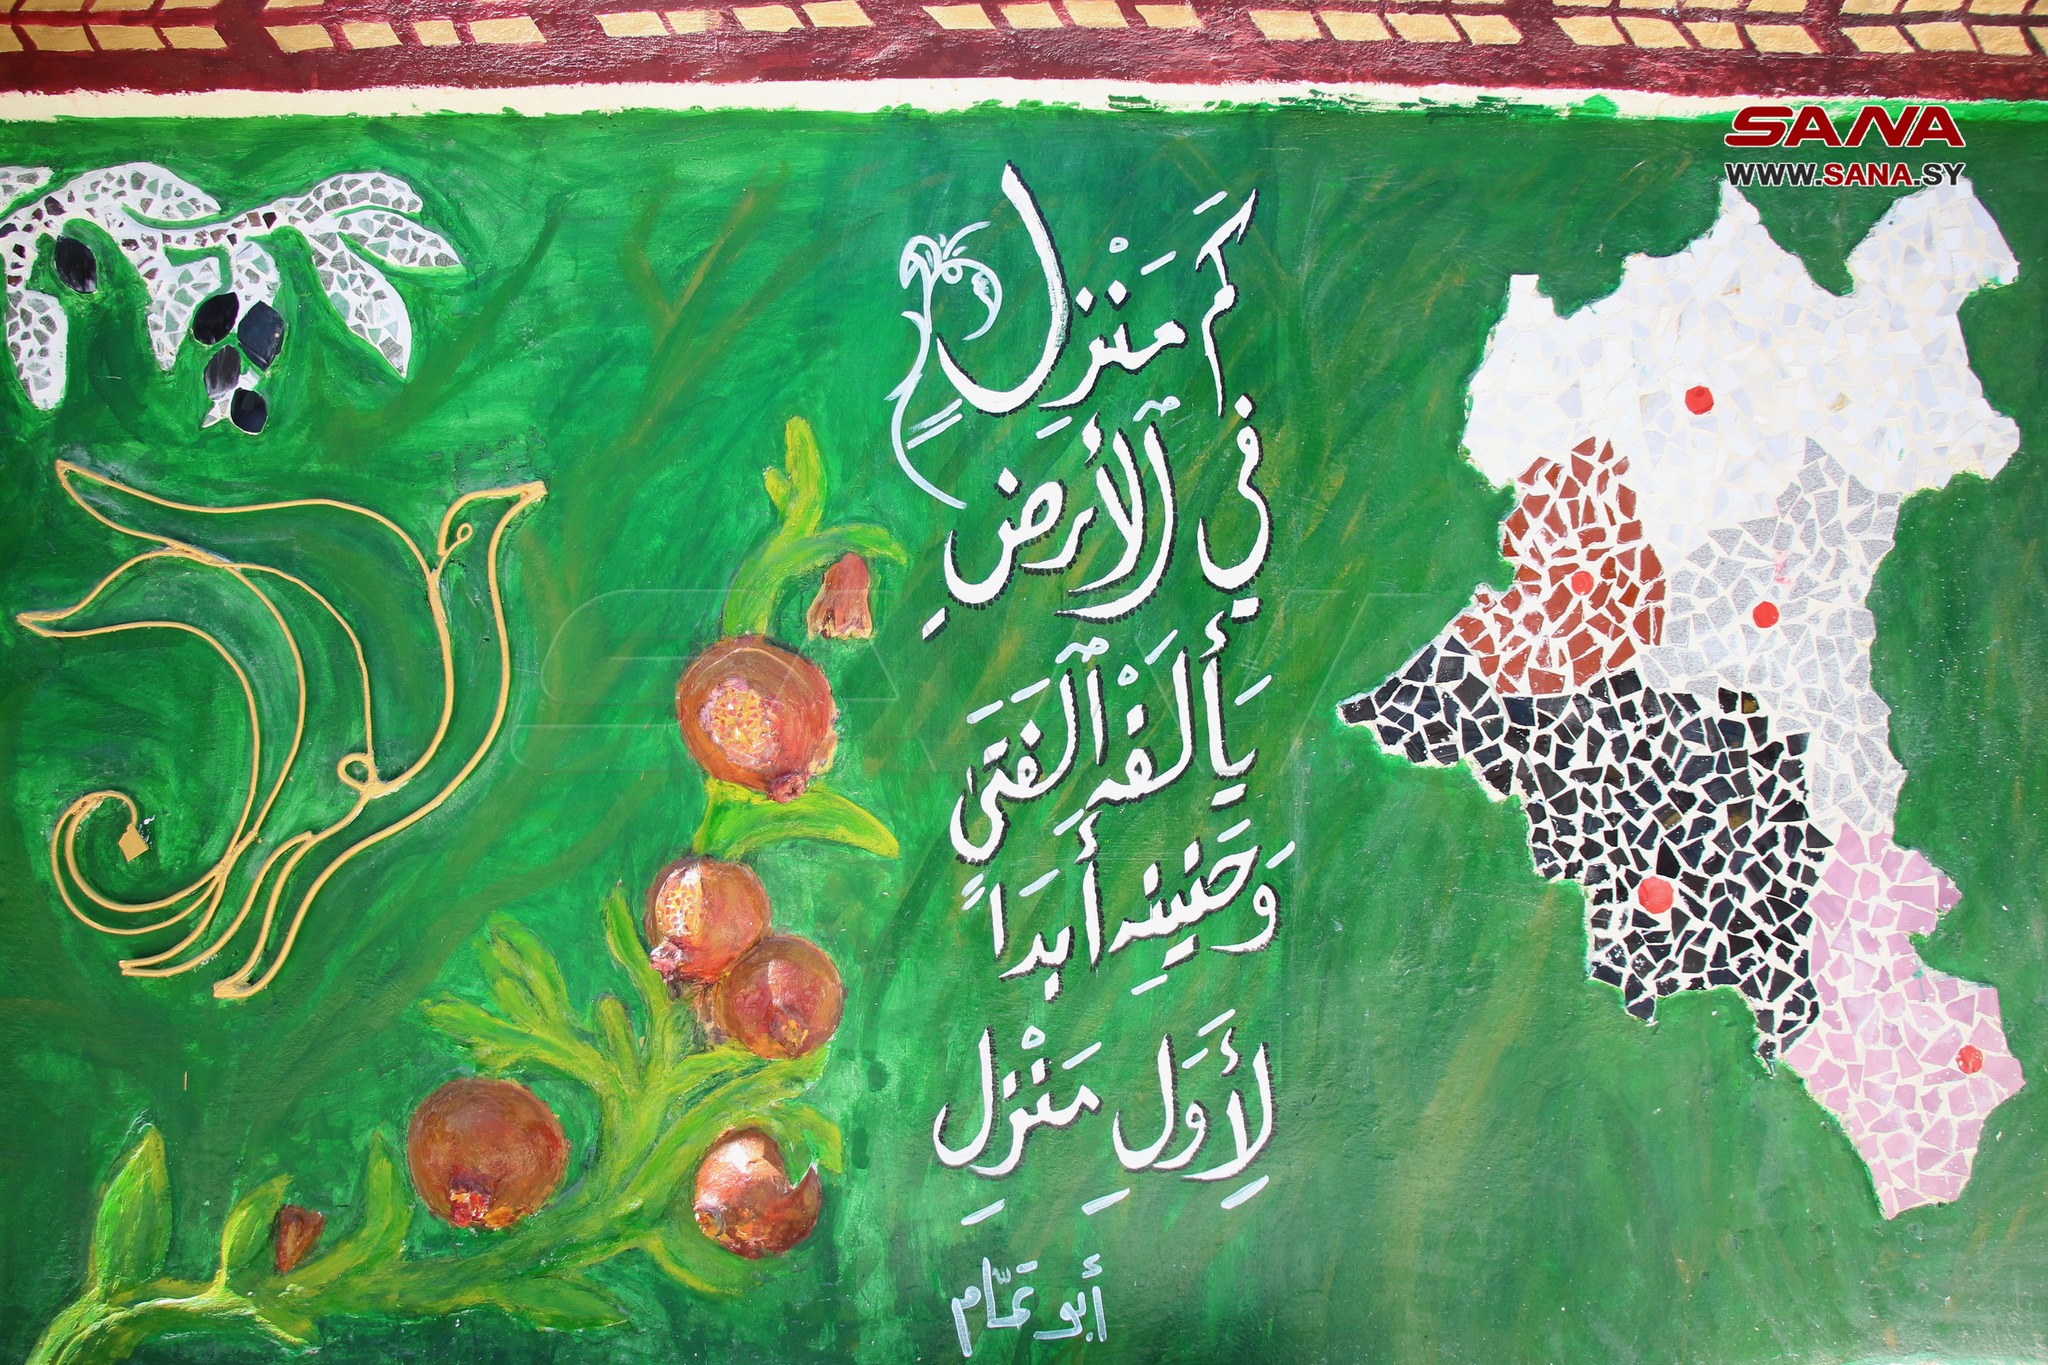 SANA
WWW.SANA.SY
كَمْ مَنْزِلٍ
في ٱلأرضِ
يَألَفْهُ ٱلفَتَى
وَحَنينه أبَداً
لِأَوَلِ مَنْزِلِ
أبو تمَّام
SANA